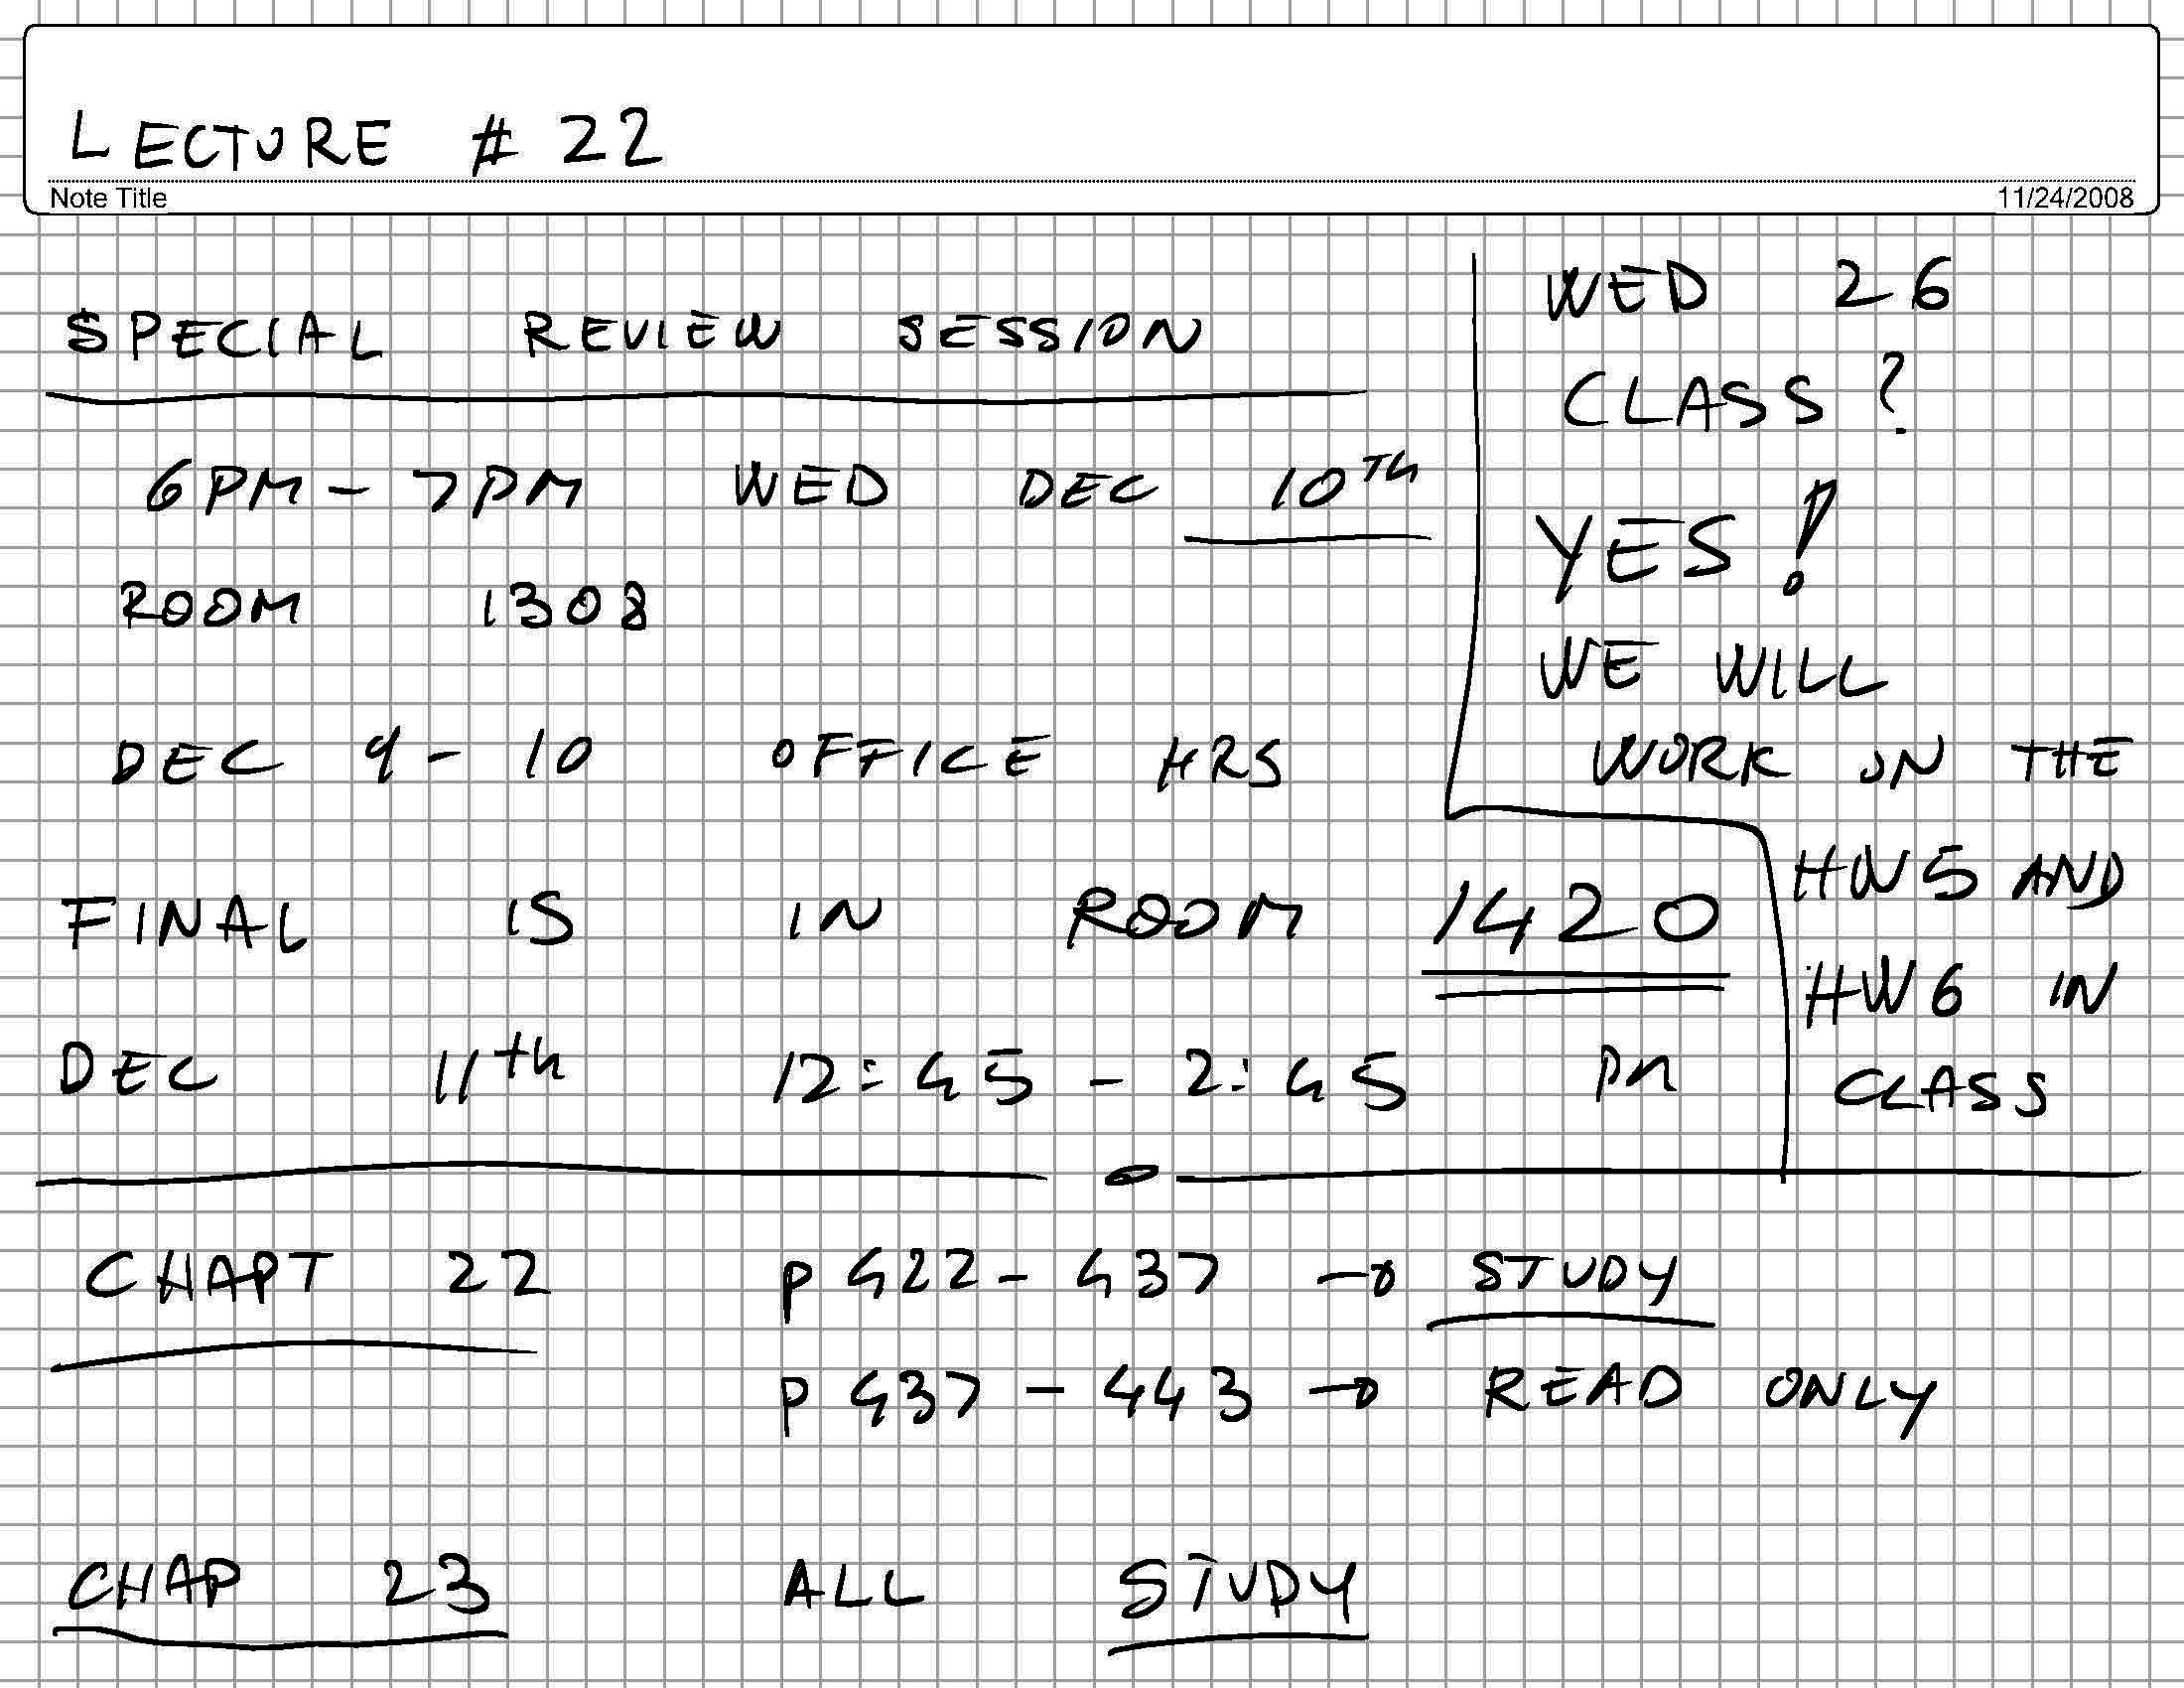 LECTURE # 22
Note Title
11/24/2008
SPECIAL REVIEW SESSION
6PM - 7PM WED DEC 10TH
ROOM 1308
DEC 9 - 10 OFFICE HRS
FINAL IS IN ROOM 1420
DEC 11th 12:45 - 2:45 PM
WED 26
CLASS?
YES!
WE WILL
WORK ON THE
HW5 AND
HW6 IN
CLASS
CHAPT 22 p 422 - 437 → STUDY
p 437 - 443 → READ ONLY
CHAP 23 ALL STUDY